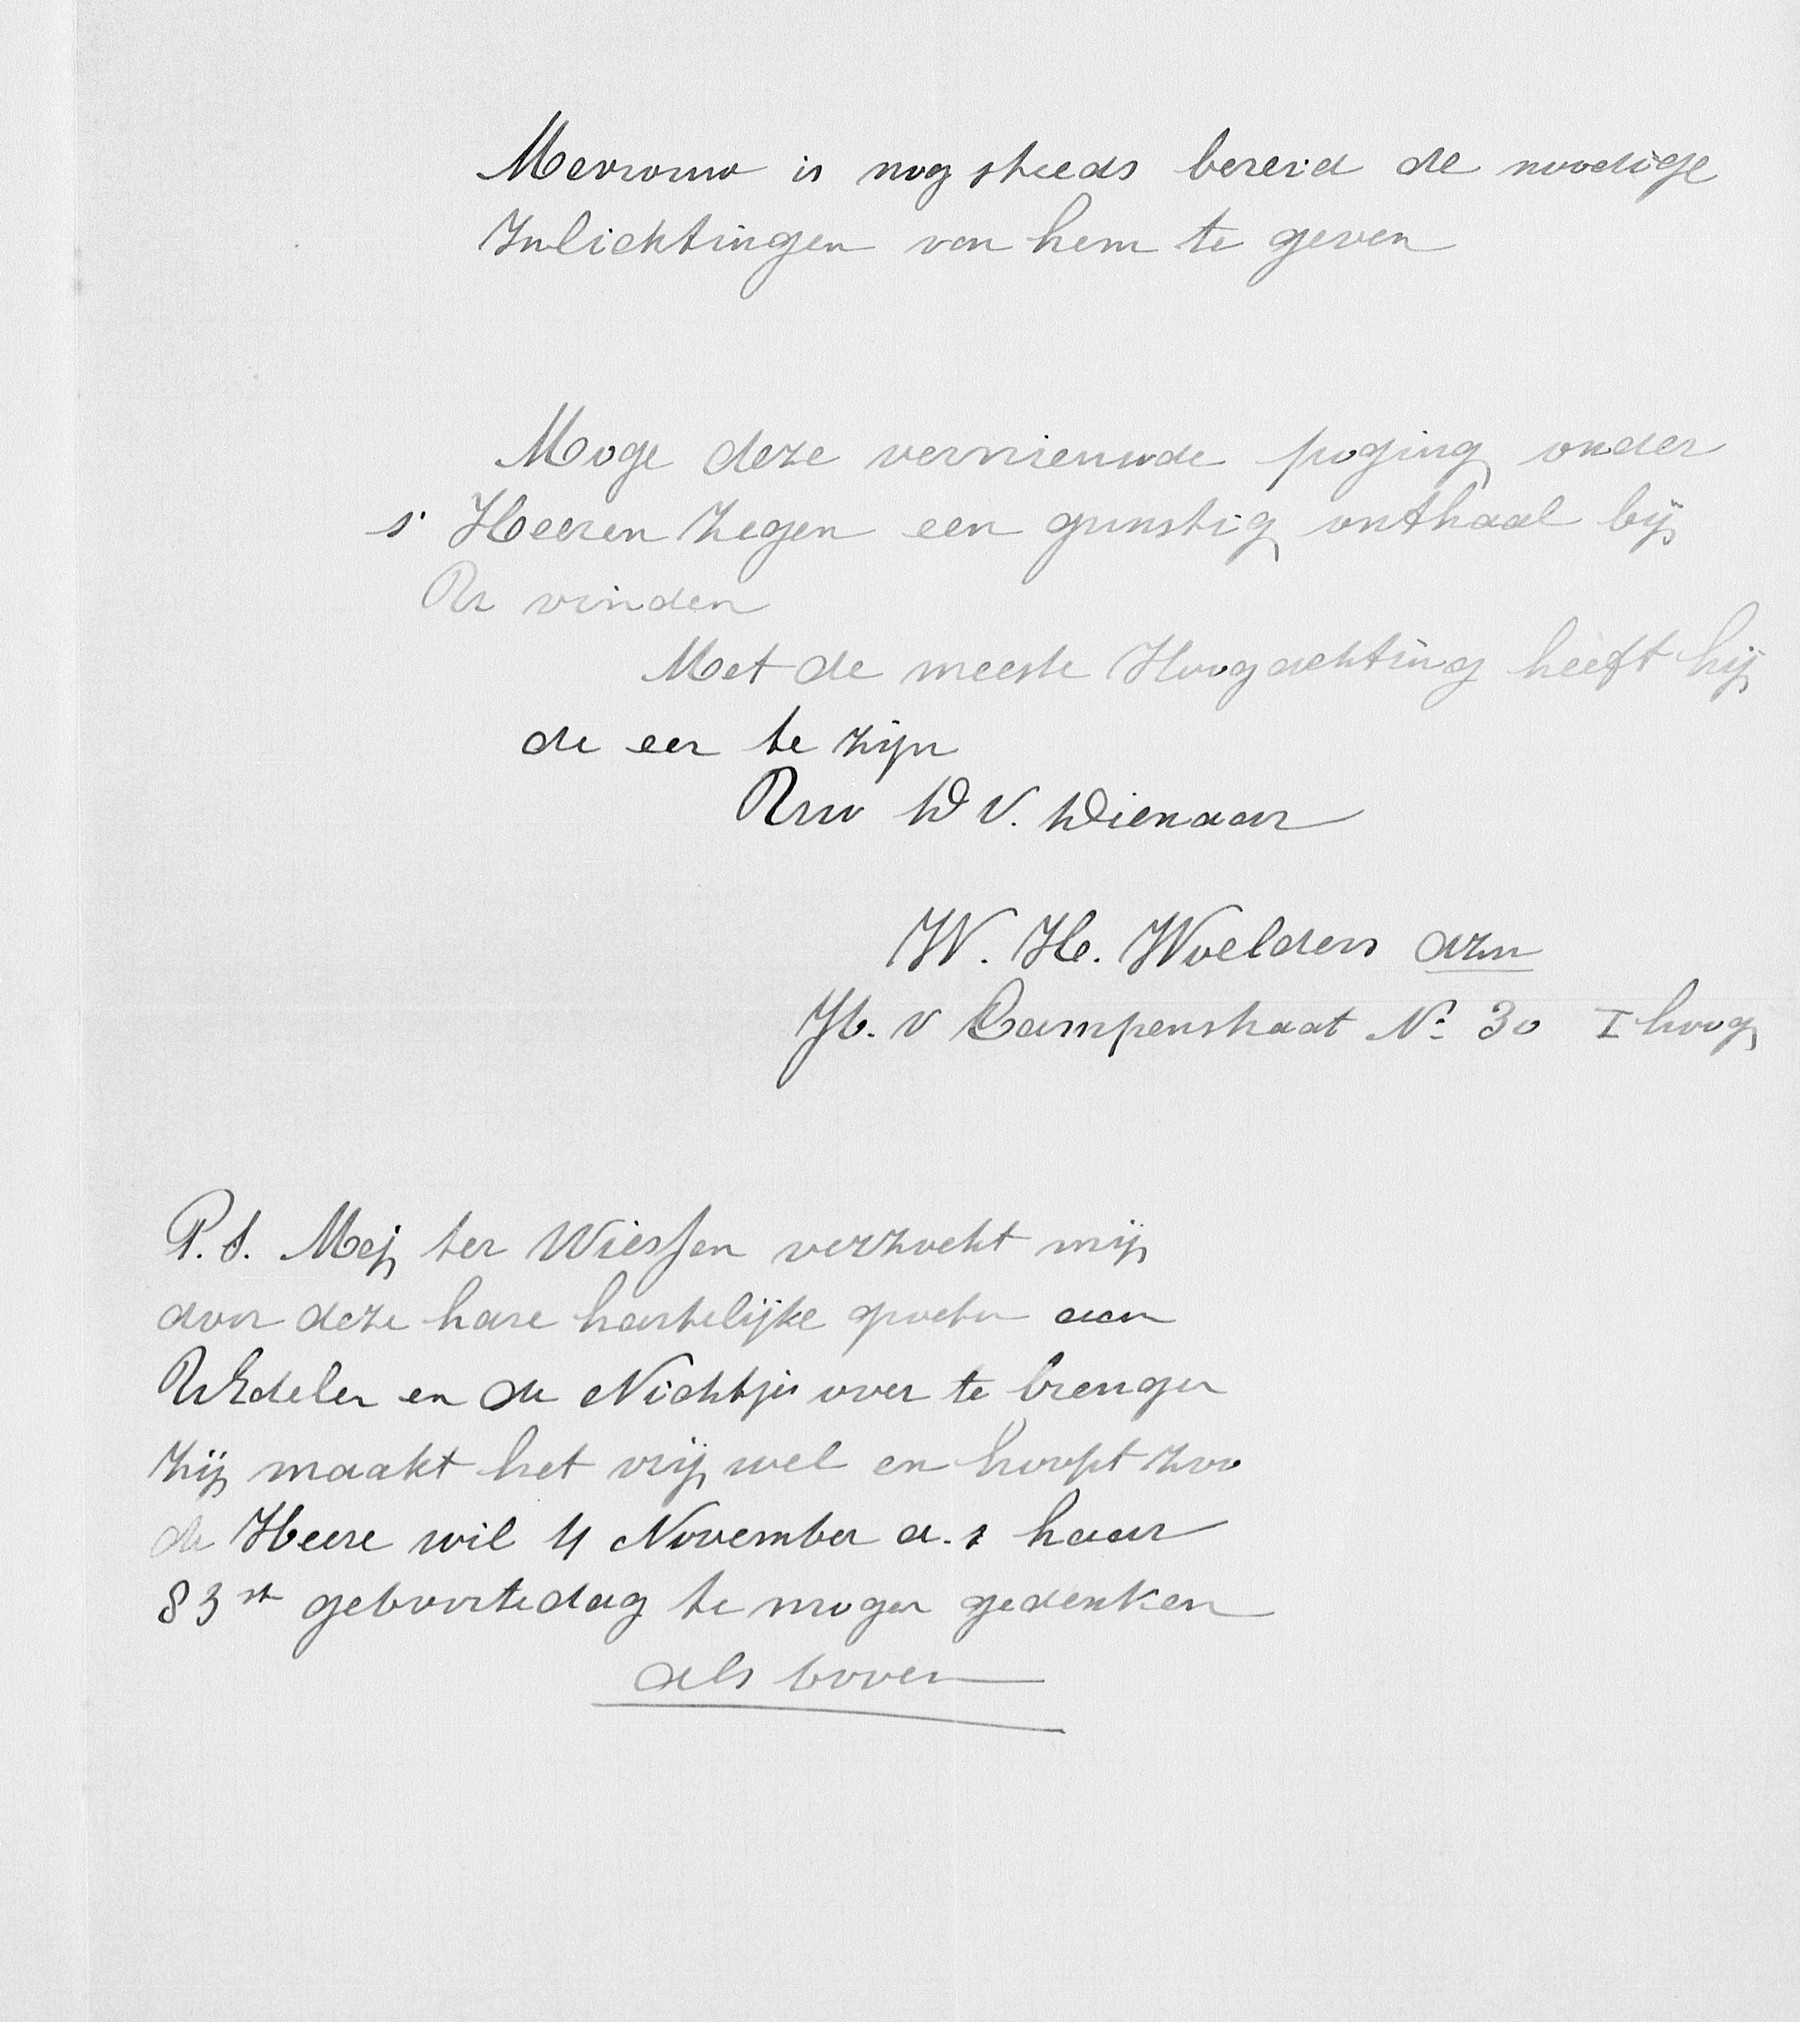 Mevrouw is nog steeds bereid de noodige
Inlichtingen van hem te geven
Moge deze vernieuwde poging onder
s' Heeren zegen een gunstig onthaal bij
Ur vinden
Met de meeste Hoogachting heeft hij
de eer te zijn
Uw D V. Dienaar
W. H. Woelders azn
H. v Campenstraat No. 30 I hoog
P.S. Mej ter Wiessen verzocht mij
door deze hare hartelijke groeten aan
UEdelen en de Nichtjes over te brengen
Zij maakt het vrij wel en hoopt zoo
de Heere wil 4 November a.s haar
83st geboortedag te mogen gedenken
als boven